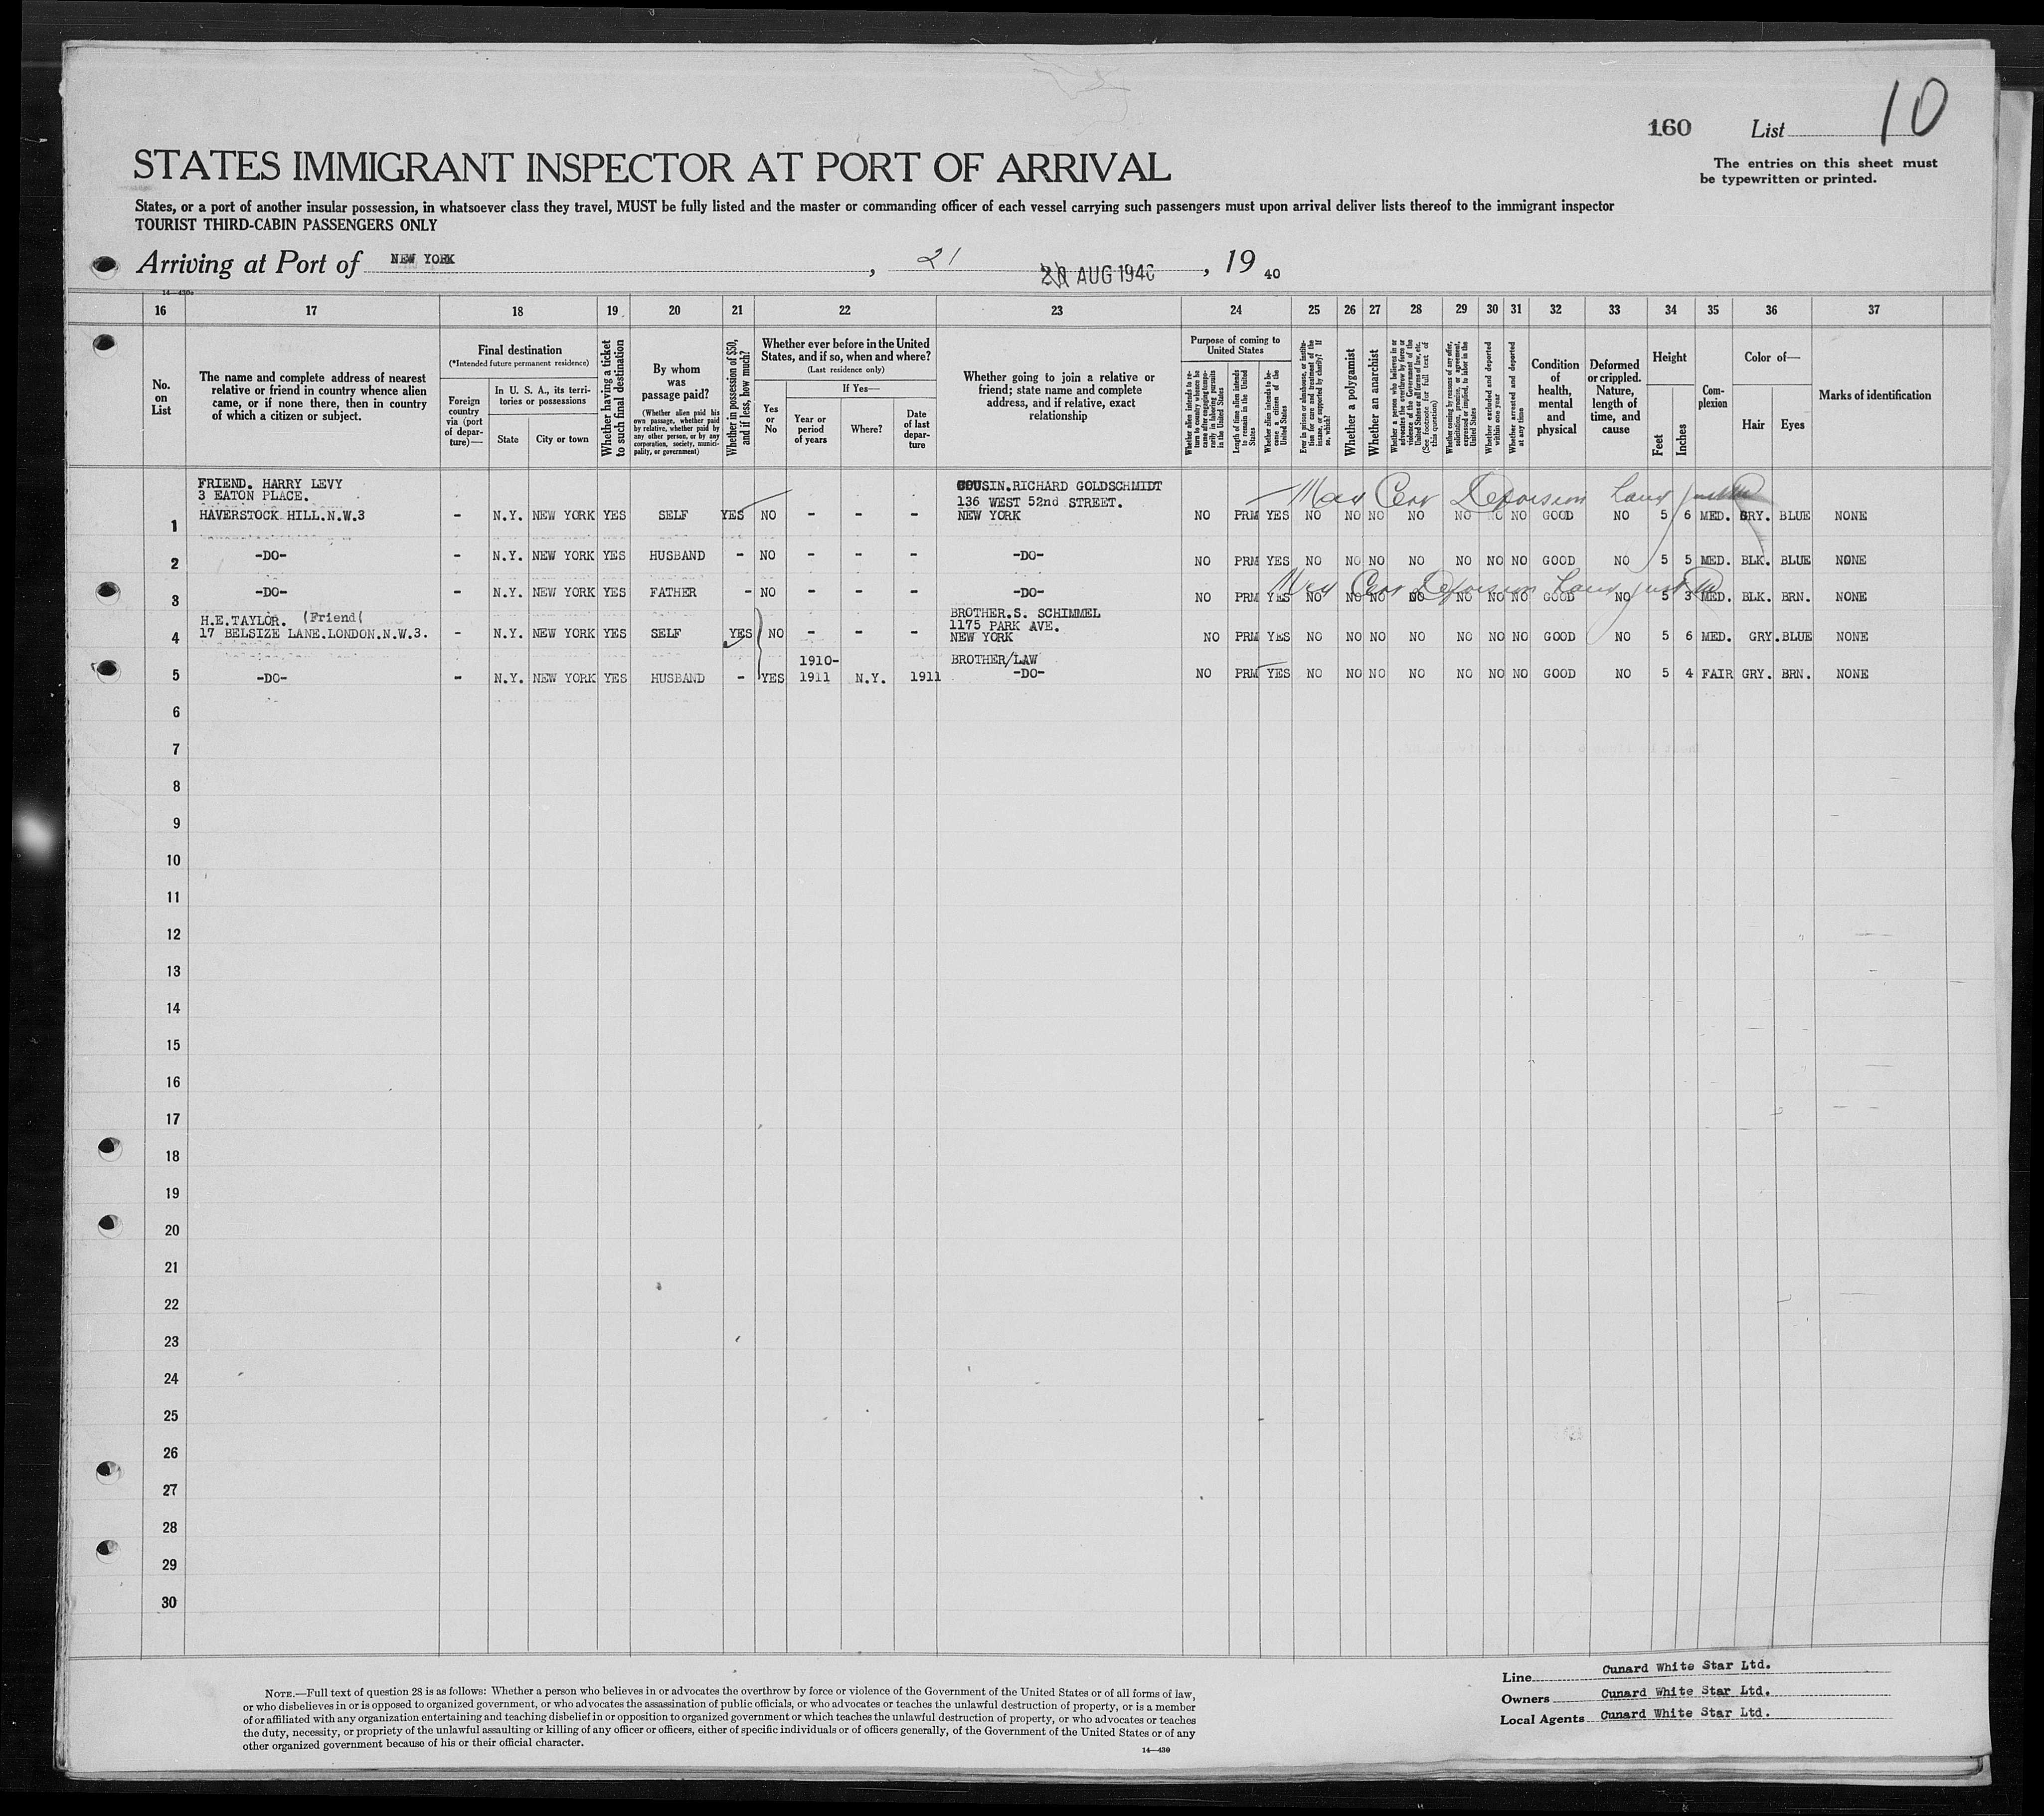 160 List 10
The entries on this sheet must
be typewritten or printed.
STATES IMMIGRANT INSPECTOR AT PORT OF ARRIVAL
States, or a port of another insular possession, in whatsoever class they travel, MUST be fully listed and the master or commanding officer of each vessel carrying such passengers must upon arrival deliver lists thereof to the immigrant inspector
TOURIST THIRD-CABIN PASSENGERS ONLY
Arriving at Port of NEW YORK, 21 AUG 1940, 19 40
14—430a
16 17 18 19 20 21 22 23 24 25 26 27 28 29 30 31 32 33 34 35 36 37
No.
on
List
The name and complete address of nearest
relative or friend in country whence alien
came, or if none there, then in country
of which a citizen or subject.
Final destination
(*Intended future permanent residence)
Foreign
country
via (port
of depar-
ture)—
In U. S. A., its terri-
tories or possessions
State
City or town
Whether having a ticket
to such final destination
By whom
was
passage paid?
(Whether alien paid his
own passage, whether paid
by relative, whether paid by
any other person, or by any
corporation, society, munici-
pality, or government)
Whether in possession of $50,
and if less, how much?
Whether ever before in the United
States, and if so, when and where?
(Last residence only)
Yes
or
No
If Yes—
Year or
period
of years
Where?
Date
of last
depar-
ture
Whether going to join a relative or
friend; state name and complete
address, and if relative, exact
relationship
Purpose of coming to
United States
Whether alien intends to re-
turn to country whence he
came after engaging tempo-
rarily in laboring pursuits
in the United States
Length of time alien intends
to remain in the United
States
Whether alien intends to be-
come a citizen of the
United States
Ever in prison or almshouse, or institu-
tion for care and treatment of the
insane, or supported by charity? If
so, which?
Whether a polygamist
Whether an anarchist
Whether a person who believes in or
advocates the overthrow by force or
violence of the Government of the
United States or all forms of law, etc.
(See footnote for full text of
this question)
Whether coming by reasons of any offer,
solicitation, promise, or agreement,
expressed or implied, to labor in the
United States
Whether excluded and deported
within one year
Whether arrested and deported
at any time
Condition
of
health,
mental
and
physical
Deformed
or crippled.
Nature,
length of
time, and
cause
Height
Feet
Inches
Com-
plexion
Color of—
Hair
Eyes
Marks of identification
FRIEND. HARRY LEVY
3 EATON PLACE.
COUSIN.RICHARD GOLDSCHMIDT
136 WEST 52nd STREET.
1 HAVERSTOCK HILL.N.W.3 - N.Y. NEW YORK YES SELF YES NO - - - NEW YORK NO PRM YES NO NO NO NO NO NO NO GOOD NO 5 6 MED. GRY. BLUE NONE
2 -DO- - N.Y. NEW YORK YES HUSBAND - NO - - - -DO- NO PRM YES NO NO NO NO NO NO NO GOOD NO 5 5 MED. BLK. BLUE NONE
3 -DO- - N.Y. NEW YORK YES FATHER - NO - - - -DO- NO PRM YES NO NO NO NO NO NO NO GOOD NO 5 3 MED. BLK. BRN. NONE
H.E.TAYLOR. (Friend(
BROTHER.S. SCHIMMEL
1175 PARK AVE.
4 17 BELSIZE LANE.LONDON.N.W.3. - N.Y. NEW YORK YES SELF YES NO - - - NEW YORK NO PRM YES NO NO NO NO NO NO NO GOOD NO 5 6 MED. GRY. BLUE NONE
1910- BROTHER/LAW
5 -DO- - N.Y. NEW YORK YES HUSBAND - YES 1911 N.Y. 1911 -DO- NO PRM YES NO NO NO NO NO NO NO GOOD NO 5 4 FAIR GRY. BRN. NONE
6
7
8
9
10
11
12
13
14
15
16
17
18
19
20
21
22
23
24
25
26
27
28
29
30
NOTE.—Full text of question 28 is as follows: Whether a person who believes in or advocates the overthrow by force or violence of the Government of the United States or of all forms of law,
or who disbelieves in or is opposed to organized government, or who advocates the assassination of public officials, or who advocates or teaches the unlawful destruction of property, or is a member
of or affiliated with any organization entertaining and teaching disbelief in or opposition to organized government or which teaches the unlawful destruction of property, or who advocates or teaches
the duty, necessity, or propriety of the unlawful assaulting or killing of any officer or officers, either of specific individuals or of officers generally, of the Government of the United States or of any
other organized government because of his or their official character.
14—430
Line Cunard White Star Ltd.
Owners Cunard White Star Ltd.
Local Agents Cunard White Star Ltd.